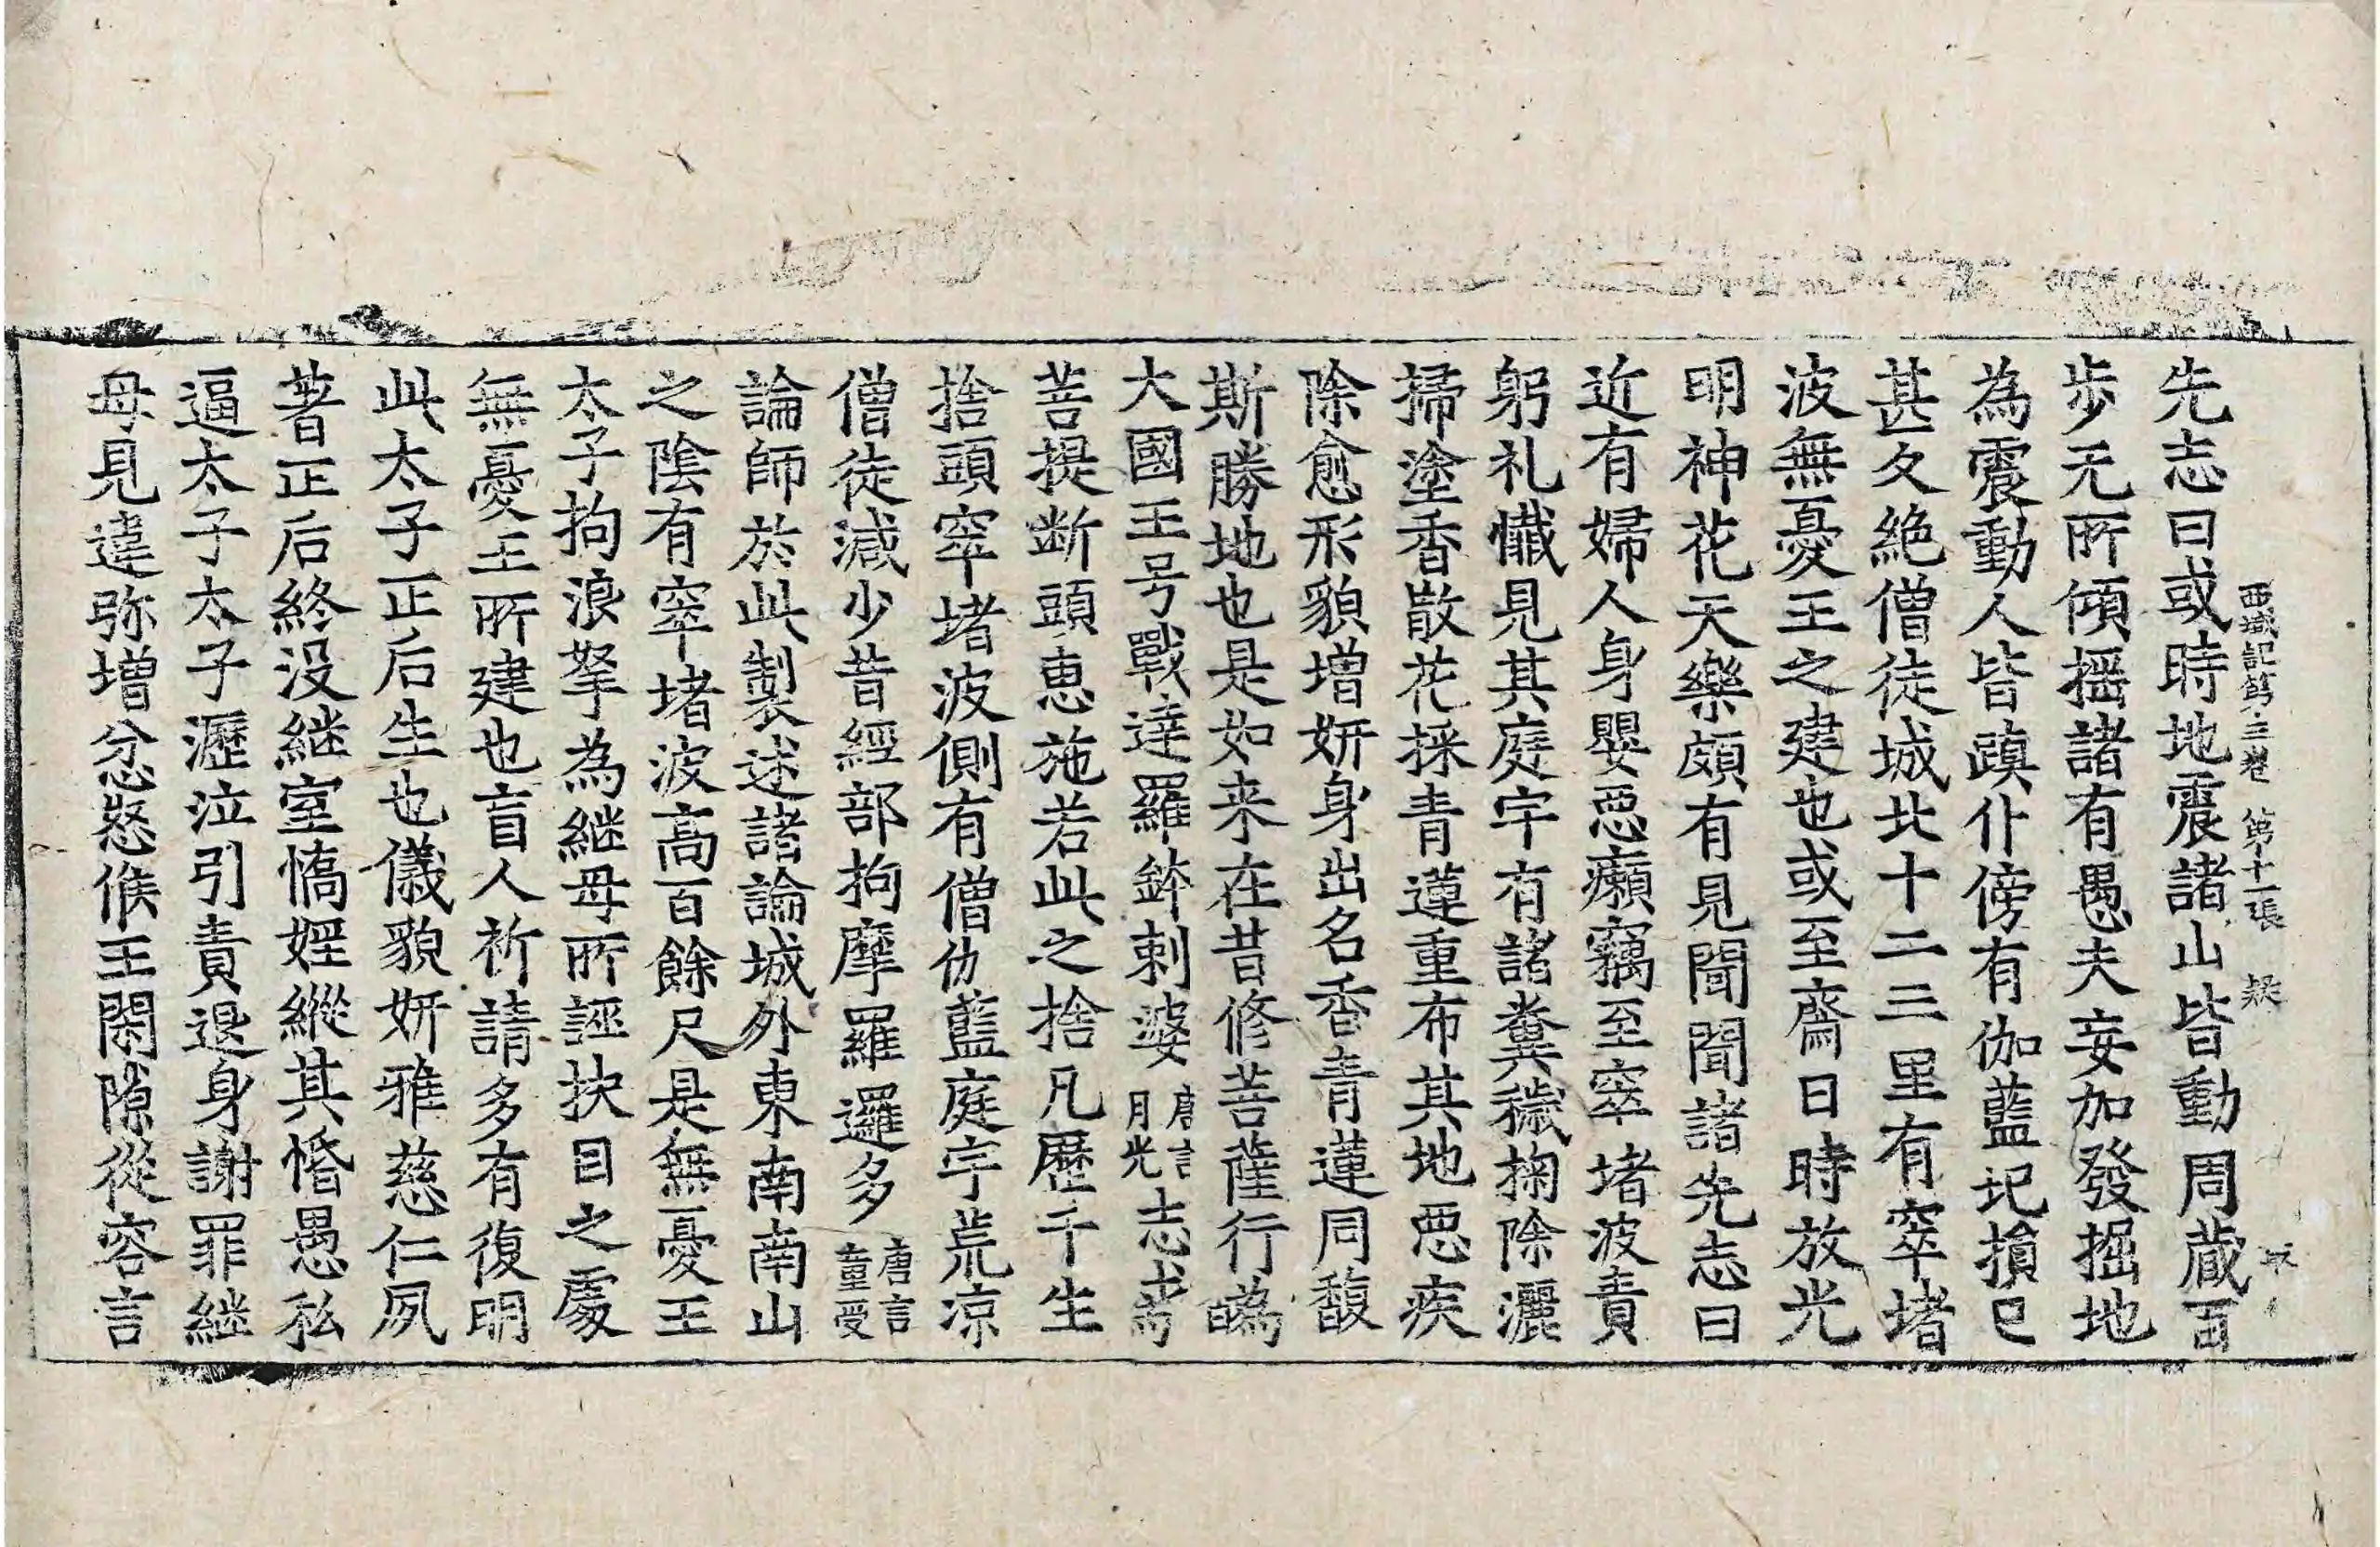 西域記第三卷 第十一張 疑
先志曰或時地震諸山皆動周藏百
步无所傾摇諸有愚夫妄加發掘地
為震動人皆蹎仆傍有伽藍圮損已
甚久絶僧徒城北十二三里有窣堵
波無憂王之建也或至齋日時放光
明神花天樂頗有見聞聞諸先志曰
近有婦人身嬰惡癩竊至窣堵波責
躬礼懺見其庭宇有諸糞穢掬除灑
掃塗香散花採青蓮重布其地惡疾
除愈形貌増妍身出名香青蓮同馥
斯勝地也是如来在昔修菩薩行為
大國王号戰達羅鉢剌婆唐言月光志求
菩提断頭惠施若此之捨凡歷千生
捨頭窣堵波側有僧伽藍庭宇荒凉
僧徒減少昔經部拘摩羅邏多唐言童受
論師於此製述諸論城外東南南山
之陰有窣堵波高百餘尺是無憂王
太子拘浪拏為継母所誣抉目之處
無憂王所建也盲人祈請多有復明
此太子正后生也儀貌妍雅慈仁夙
著正后終没継室憍婬縱其惛愚私
逼太子太子瀝泣引責退身謝罪継
母見違弥增忿怒候王閑隙從容言